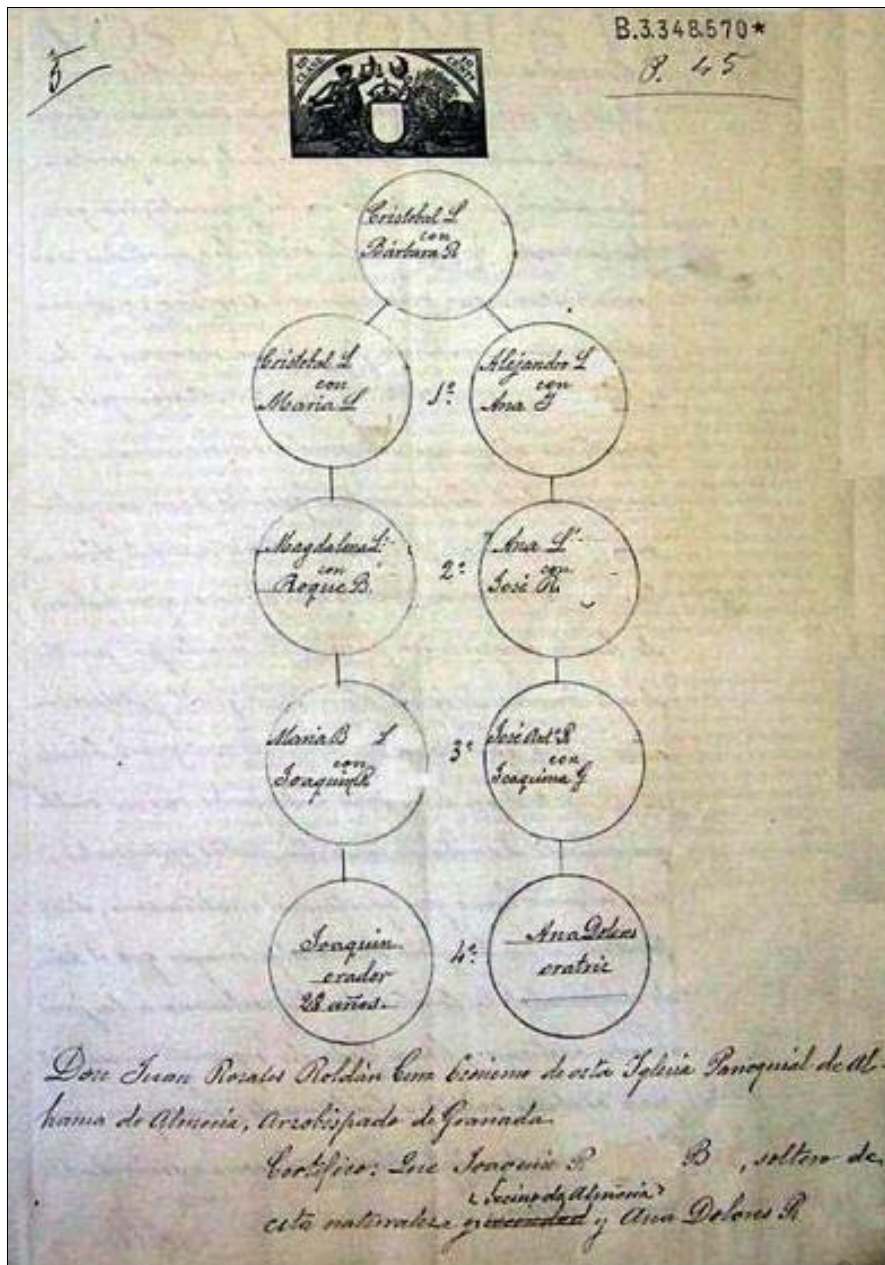 B.3.348.570*
5
P. 45
Cristobal L
con
Bárbara R
Cristobal L
con
Maria L
1º
Alejandro L
con
Ana
Magdalena L
con
Roque B.
2º
Ana L
con
José R
Maria B L
con
Joaquin R
3º
José Antº R
con
Joaquina G
Joaquin
orador
28 años.
4º
Ana Dolores
oratriz
Don Juan Rosales Roldán Cura Ecónomo de esta Iglesia Parroquial de Al-
hama de Almeria, Arzobispado de Granada.
Certifico: Que Joaquin R B, soltero de
(vecino de Almeria)
esta naturaleza y vecindad y Ana Dolores R